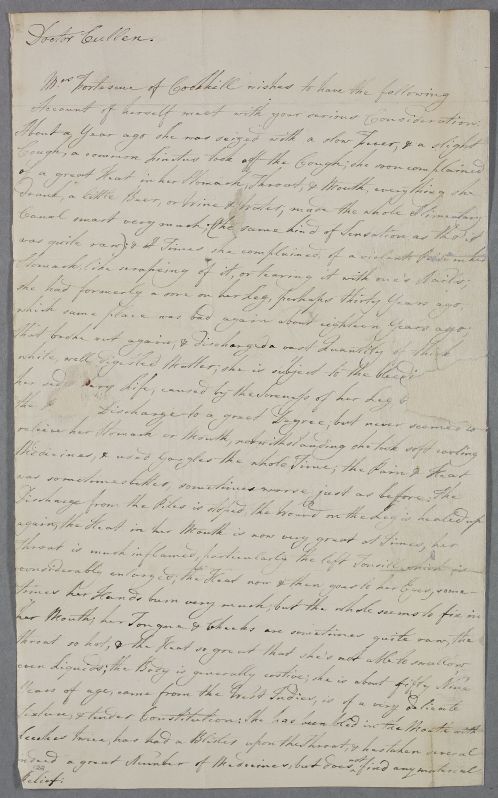 Doctor Cullen.
Mrs Fortescue of Cookhill wishes to have the following
Account of herself meet with your serious Consideration;
About a Year ago she was seized with a slow Fever, & a slight
Cough, a common linctus took off the Cough; she soon complained
of a great Heat in her Stomach, Throat, & Mouth, every thing she
drank, a little Beer, or Wine & Water, made the whole Alimentary
Canal smart very much (the same kind of Sensation as tho' it
was quite raw) & at Times she complained of a violent Pain in her
Stomach, like scrapeing of it, or tearing it with one's Nails;
she had formerly a sore on her Leg, perhaps thirty Years ago
which same place was bad again about eighteen Years ago;
that broke out again, & Discharged a vast Quantity of thick
white, well digested Matter; she is subject to the bleed
her sed very life, caused by the soreness of her Leg
the Discharge to a great Degree, but never seemed to
relieve her Stomach or Mouth, notwithstanding she took soft cooling
Medicines, & used Gargles the whole Time; the Pain & Heat
was sometimes better, sometimes worse, just as before; The
Discharge from the Piles is stoped, the wound on the Leg is healed up
again, the Heat in her Mouth is now very great at Times, her
Throat is much inflamed, particularly the left Tonsill which is
considerably enlarged; the Heat now & then goes to her Eyes, some-
times her Hands burn very much, but the whole seems to fix in
her Mouth; her Tongue & Cheeks are sometimes quite raw, the
throat so hot, & the Heat so great that she's not able to swallow
even liquids; the Body is generally costive; she is about fifty Nine
Years of age, came from the West Indies, is of a very delicate
texture, & tender Constitution: She has been bled in the Mouth with
Leeches twice, has had a Blister upon the Throat, & has taken several
indeed a great Number of Medicines, but does not find any material
Relief.